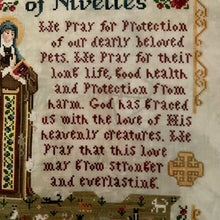 of Nivelles
We Pray for Protection
of our dearly beloved
Pets. We Pray for their
long life, Good health
and Protection from
harm. God has Graced
us with the love of His
heavenly creatures. We
Pray that this love
may Grow stronger
and everlasting.